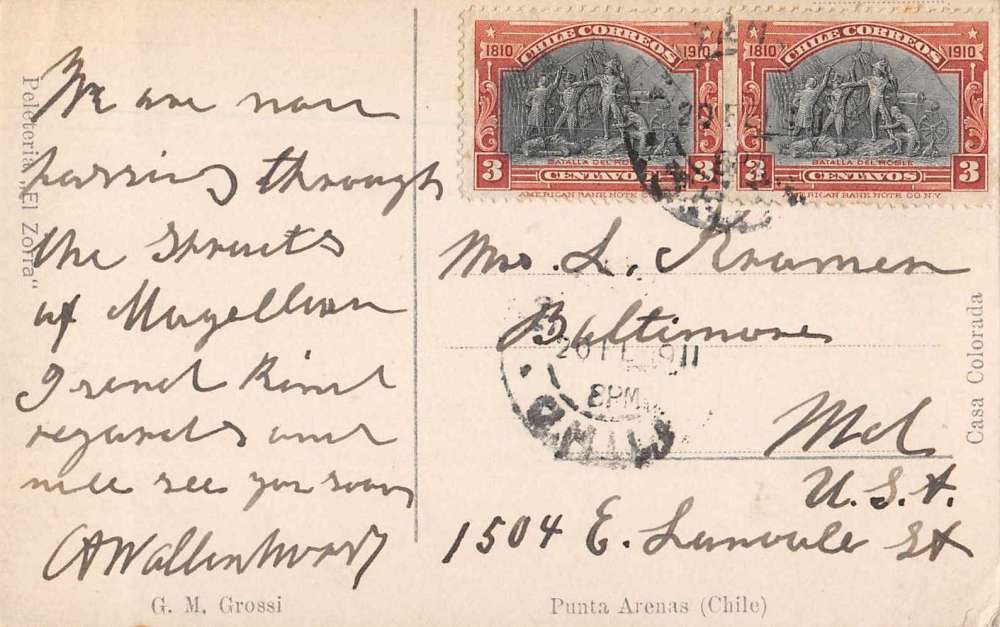 We are now
passing through
the Straits
of Magellian
I send Kind
regards and
will see you soon
Peleteria „El Zorra“
G. M. Grossi
1810 CHILE CORREOS 1910
BATALLA DEL ROBLE
3 CENTAVOS 3
AMERICAN BANK NOTE CO. N.Y.
1810 CHILE CORREOS 1910
BATALLA DEL ROBLE
3 CENTAVOS 3
AMERICAN BANK NOTE CO. N.Y.
L. Kramer
Baltimore
Md
U.S.A.
1504 E. St
1911
8PM
Casa Colorada
Punta Arenas (Chile)